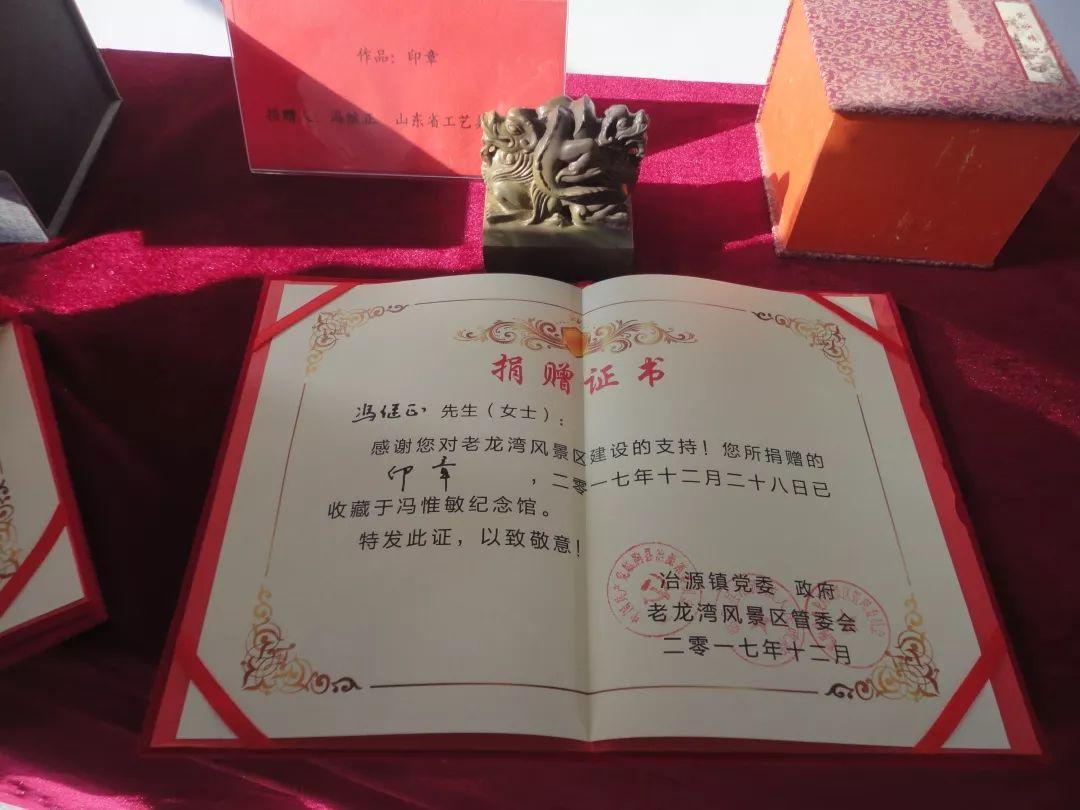 作品：印章
捐赠人：冯继正 山东省工艺美
捐赠证书
冯继正 先生（女士）：
感谢您对老龙湾风景区建设的支持！您所捐赠的
印章，二零一七年十二月二十八日已
收藏于冯惟敏纪念馆。
特发此证，以致敬意！
冶源镇党委 政府
老龙湾风景区管委会
二零一七年十二月